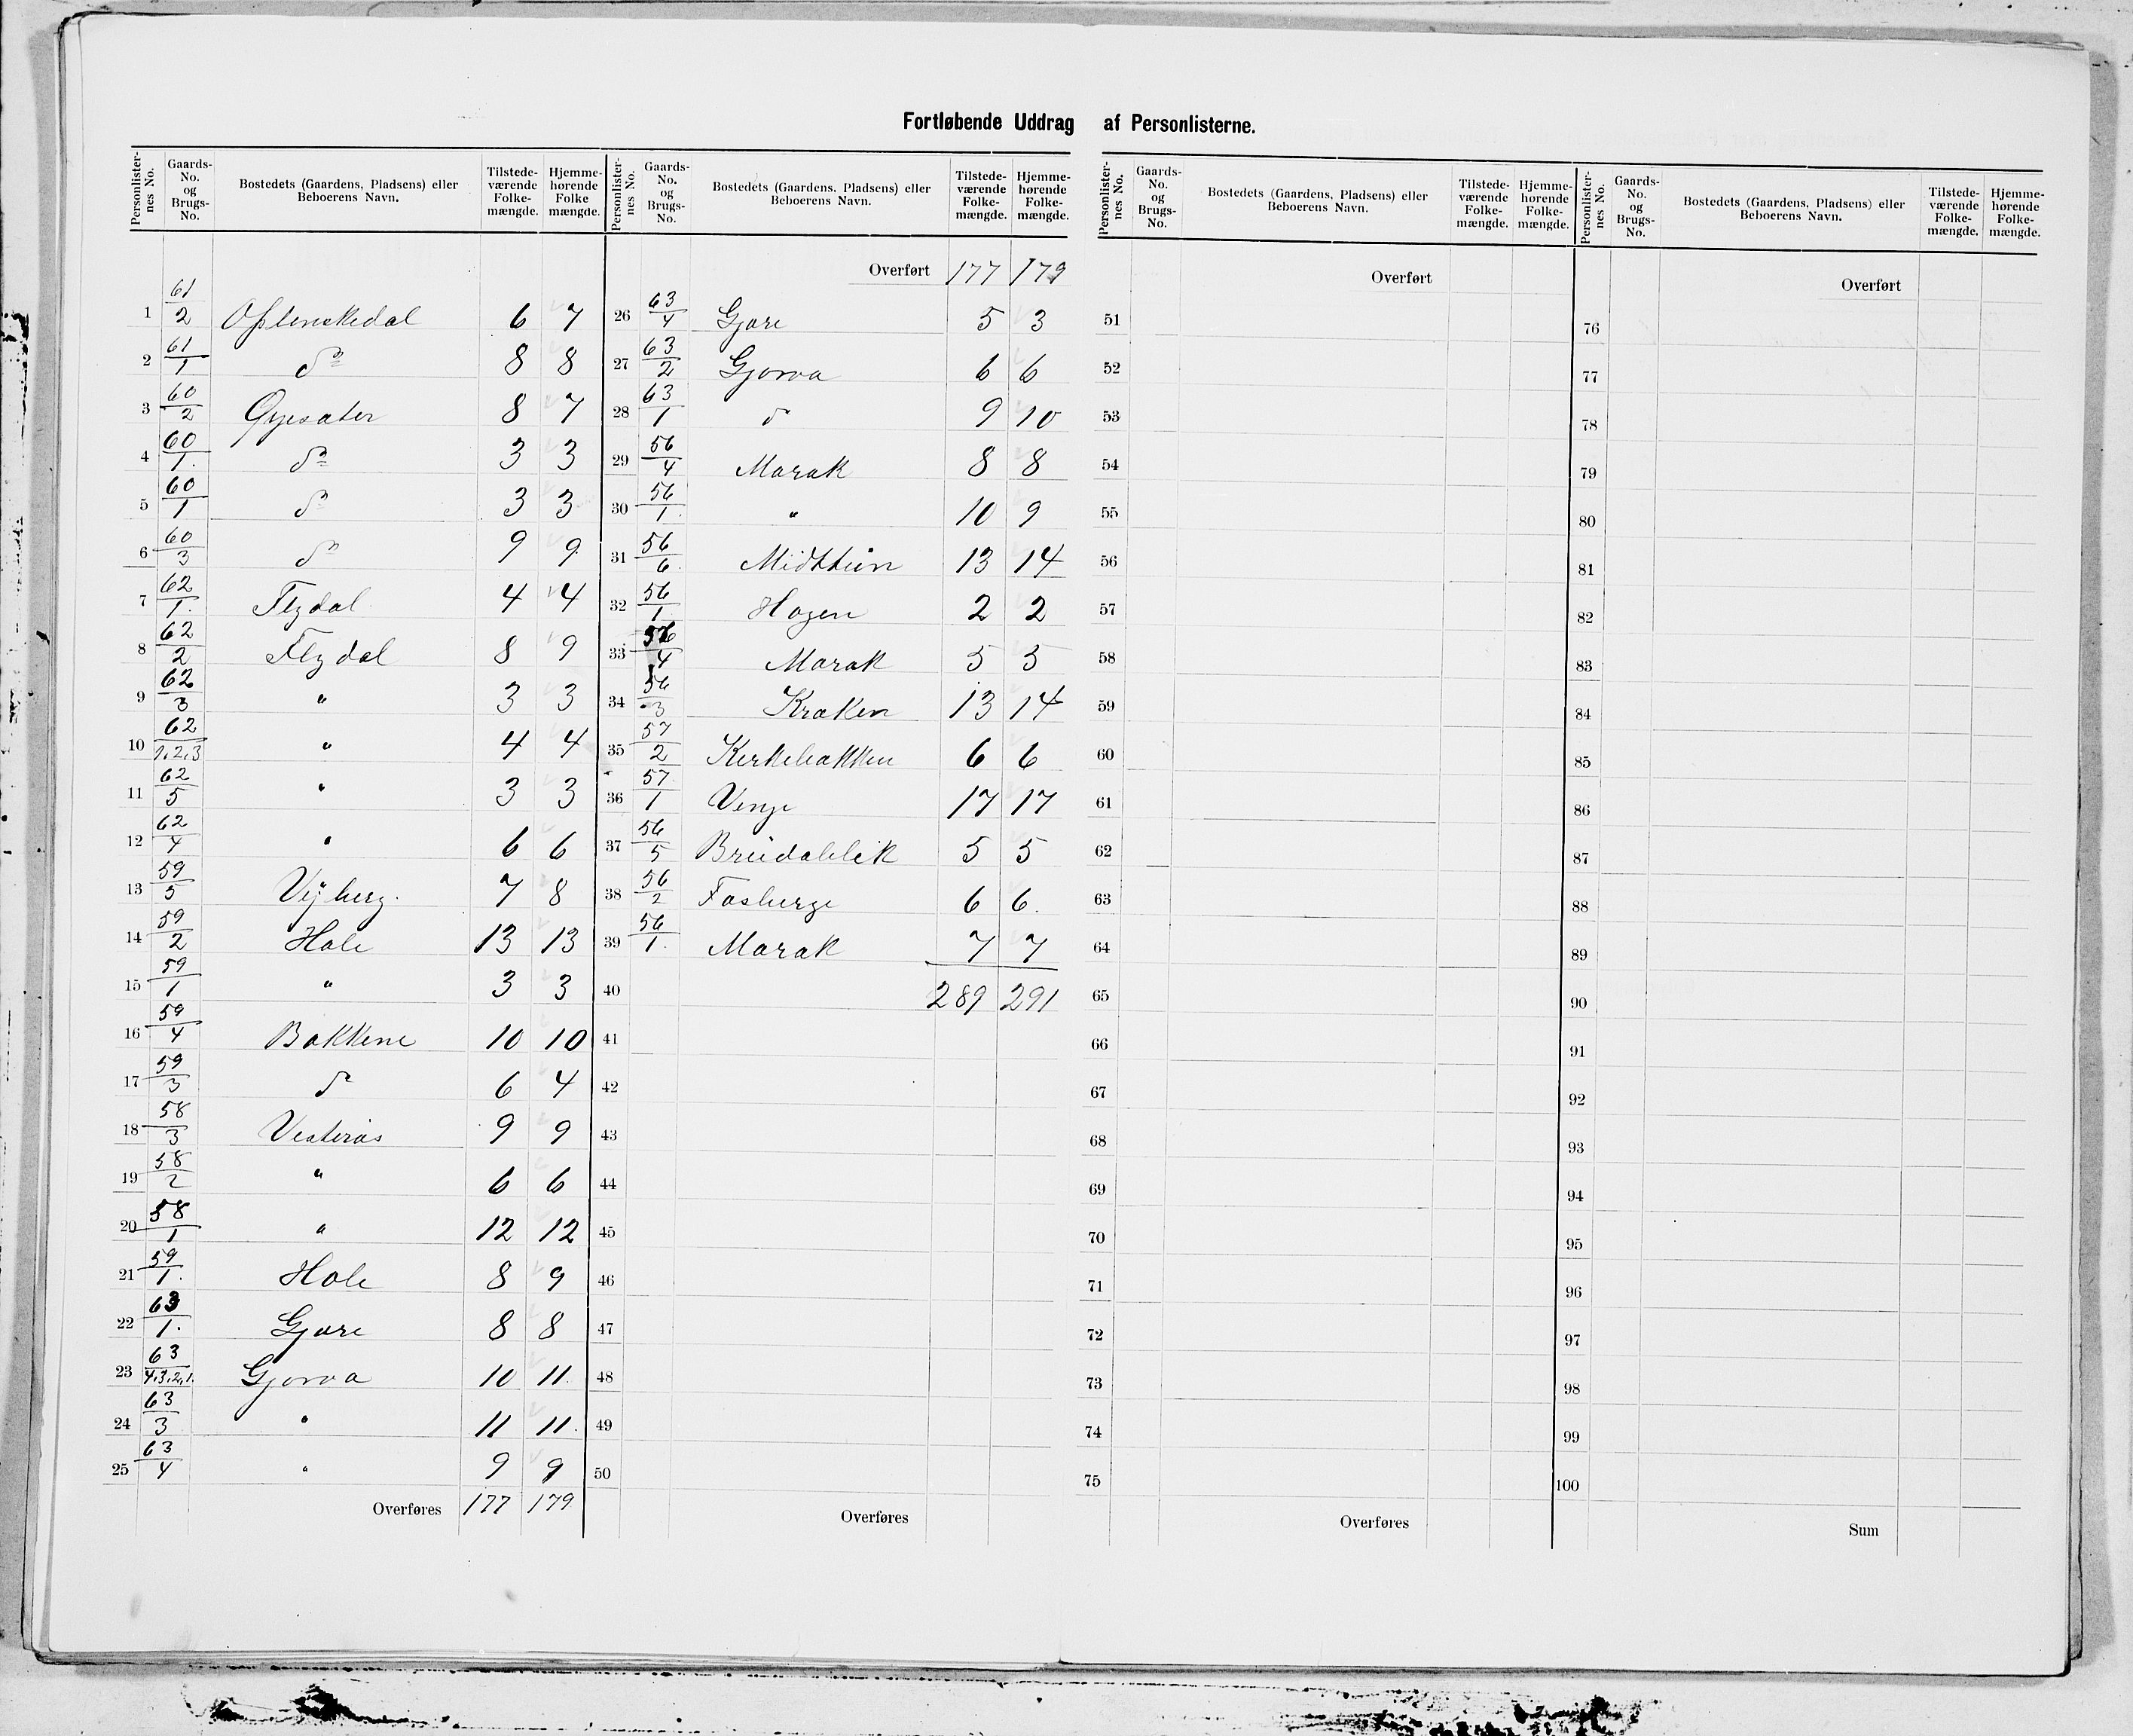 Fortløbende Uddrag af Personlisterne.
Personlisternes No. | Gaards-No. og Brugs-No. | Bostedets (Gaardens, Pladsens) eller Beboerens Navn. | Tilstedeværende Folkemængde. | Hjemmehørende Folkemængde.
1 61/2 6 7
2 61/1 do 8 8
3 60/2 8 7
4 60/1. do 3 3
5 60/1 do 3 3
6 60/3 do 9 9
7 62/1. Flydal 4 4
8 62/2 Flydal 8 9
9 62/3 " 3 3
10 62/1,2,3 " 4 4
11 62/5 " 3 3
12 62/4 " 6 6
13 59/5 7 8
14 59/2 Hole 13 13
15 59/1 " 3 3
16 59/4 Bakkene 10 10
17 59/3 do 6 4
18 58/3 Vesterås 9 9
19 58/2 " 6 6
20 58/1 " 12 12
21 59/1. Hole 8 9
22 63/1. Gjøre 8 8
23 63/4,3,2,1. Gjørva 10 11.
24 63/3 " 11 11.
25 63/4 " 9 9
Overføres 177 179
Overført 177 179
26 63/4 Gjøre 5 3
27 63/2 Gjørva 6 6
28 63/1 do 9 10
29 56/4 Marak 8 8
30 56/1. " 10 9
31 56/6. Midttun 13 14
32 56/1. Hagen 2 2
33 56/4 Marak 5 5
34 56/3 Kraken 13 14
35 57/2 Kirkebakken 6 6
36 57/1 Venge 17 17
37 56/5 5 5
38 56/2 6 6.
39 56/1. Marak 7 7
40 289 291
41
42
43
44
45
46
47
48
49
50
Overføres
Personlisternes No. | Gaards-No. og Brugs-No. | Bostedets (Gaardens, Pladsens) eller Beboerens Navn. | Tilstedeværende Folkemængde. | Hjemmehørende Folkemængde.
Overført
51
52
53
54
55
56
57
58
59
60
61
62
63
64
65
66
67
68
69
70
71
72
73
74
75
Overføres
Overført
76
77
78
79
80
81
82
83
84
85
86
87
88
89
90
91
92
93
94
95
96
97
98
99
100
Sum